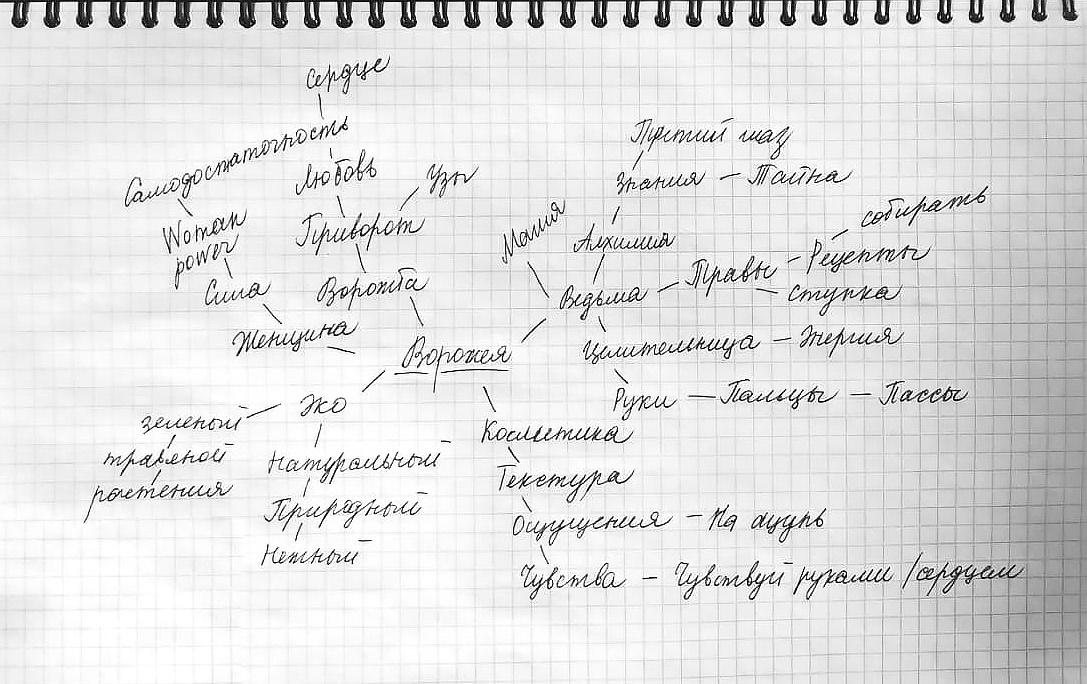 Сердце
Самодостаточность
Любовь
Узы
Woman
power
Приворот
Сила
Ворожба
Женщина
Ворожея
Магия
Третий глаз
Знания – Тайна
Алхимия
собирать
Ведьма – Травы – Рецепты
– Ступка
Целительница – Энергия
Руки – Пальцы – Пассы
Эко
зеленый
травяной
растения
Натуральный
Природный
Нежный
Косметика
Текстура
Ощущения – На ощупь
Чувства – Чувствуй руками / сердцем